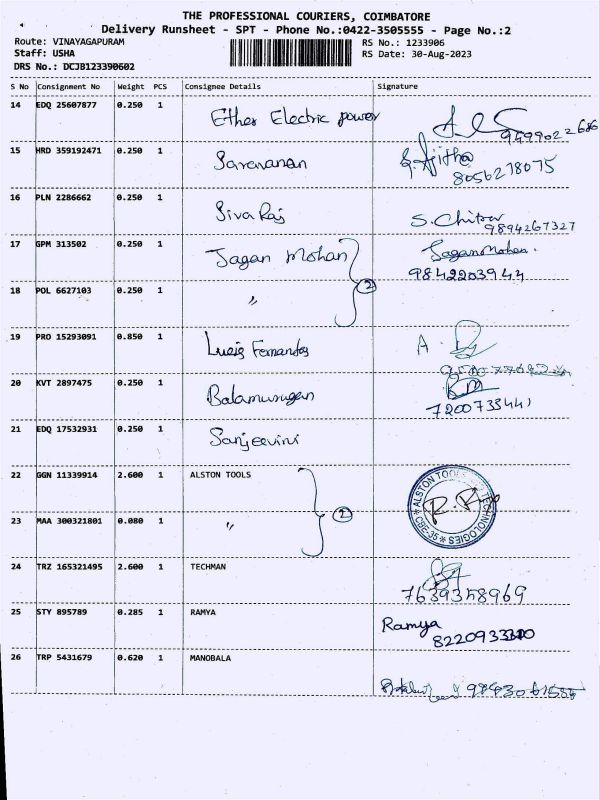 THE PROFESSIONAL COURIERS, COIMBATORE
Delivery Runsheet - SPT - Phone No.:0422-3505555 - Page No.:2
Route: VINAYAGAPURAM
RS No.: 1233906
Staff: USHA
RS Date: 30-Aug-2023
DRS No.: DCJB123390602
S No Consignment No Weight PCS Consignee Details Signature
14 EDQ 25607877 0.250 1 Ether Electric power
15 HRD 359192471 0.250 1 Saravanan S. Ajitha
8056278075
16 PLN 2286662 0.250 1 Siva Raj S. Chitra
9894267327
17 GPM 313502 0.250 1 Jagan Mohan Jagan Mohan.
9842203944
18 POL 6627103 0.250 1 " 2
19 PRO 15293091 0.850 1 Lucis Fernandes A.
20 KVT 2897475 0.250 1 Balamurugan
7200733441
21 EDQ 17532931 0.250 1 Sanjeevini
22 GGN 11339914 2.600 1 ALSTON TOOLS
ALSTON TOOLS TECHNOLOGIES * CBE-35 *
23 MAA 300321801 0.080 1 " 2
24 TRZ 165321495 2.600 1 TECHMAN
7639358969
25 STY 895789 0.285 1 RAMYA Ramya
26 TRP 5431679 0.620 1 MANOBALA